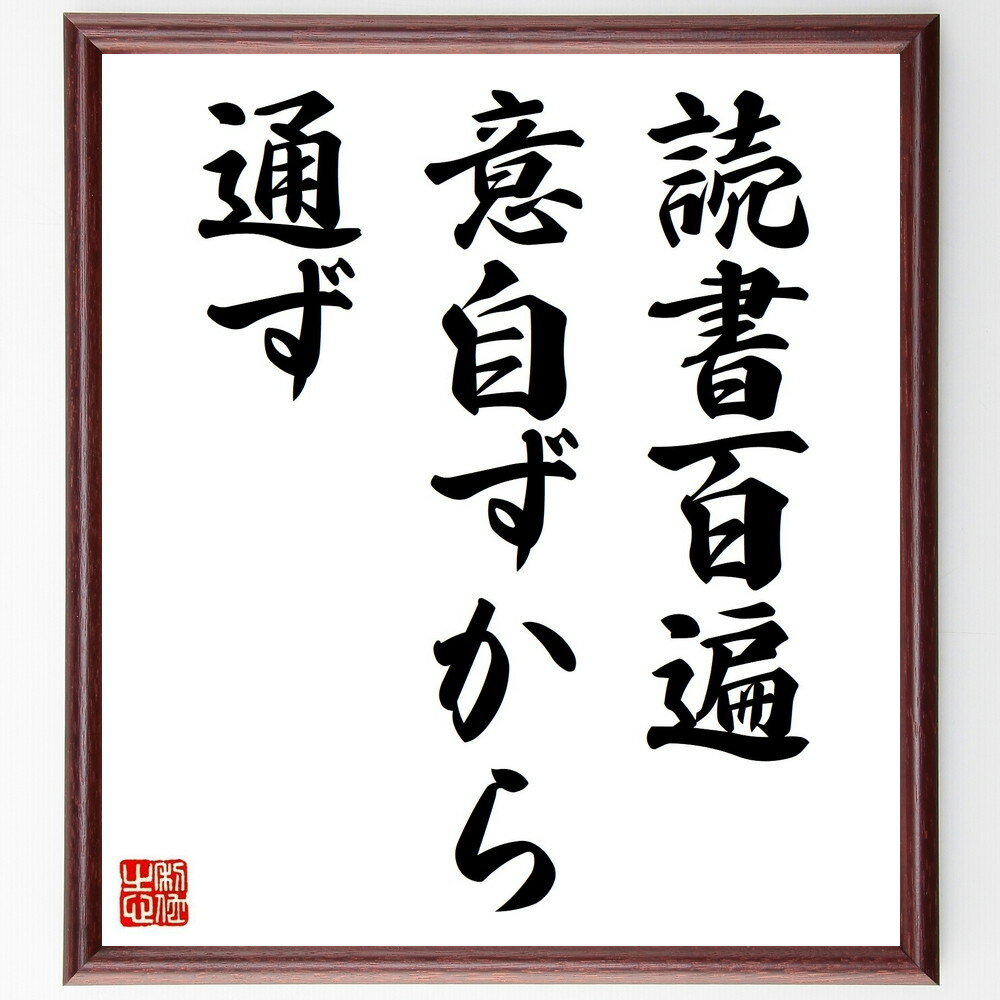 読書百遍
意自ずから
通ず